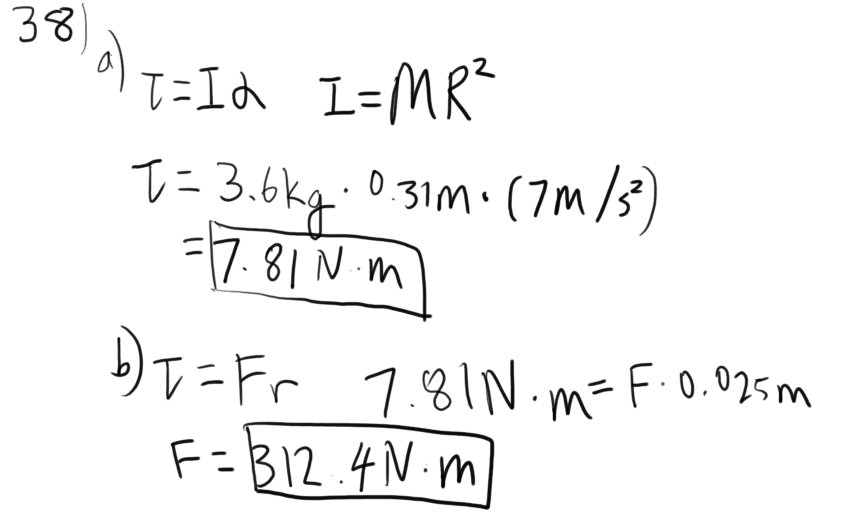 38)
a) τ=Iα I=MR²
τ= 3.6kg · 0.31m · (7m/s²)
= 7.81 N·m
b) τ=Fr 7.81N·m= F·0.025m
F= 312.4N·m